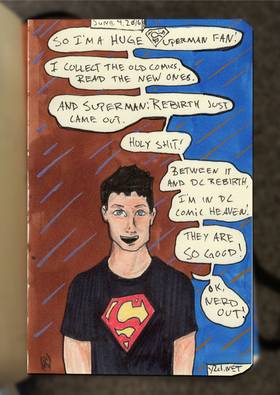 JUNE 4, 2016
SO I'M A HUGE SUPERMAN FAN!
I COLLECT THE OLD COMICS,
READ THE NEW ONES.
AND SUPERMAN: REBIRTH JUST
CAME OUT.
HOLY SHIT!
BETWEEN IT
AND DC REBIRTH,
I'M IN DC
COMIC HEAVEN.
THEY ARE
SO GOOD!
OK,
NERD
OUT!